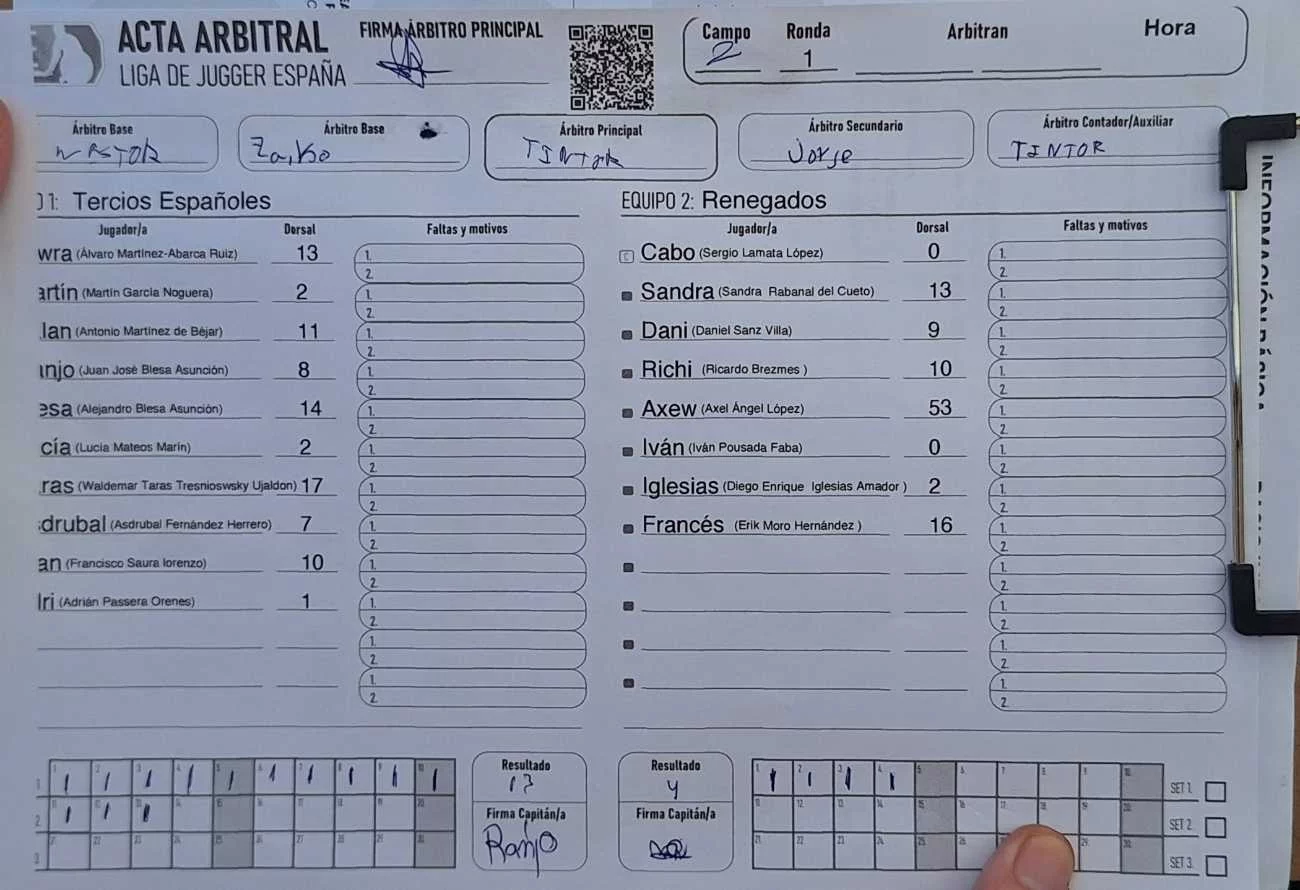 ACTA ARBITRAL
LIGA DE JUGGER ESPAÑA
FIRMA ÁRBITRO PRINCIPAL
Campo Ronda Arbitran Hora
2 1
Árbitro Base Árbitro Base Árbitro Principal Árbitro Secundario Árbitro Contador/Auxiliar
Zaiko TINTOR Jorge TINTOR
O 1: Tercios Españoles
Jugador/a Dorsal Faltas y motivos
wra (Álvaro Martínez-Abarca Ruiz) 13 1.
2.
artín (Martín García Noguera) 2 1.
2.
lan (Antonio Martinez de Béjar) 11 1.
2.
anjo (Juan José Blesa Asunción) 8 1.
2.
esa (Alejandro Blesa Asunción) 14 1.
2.
cía (Lucía Mateos Marín) 2 1.
2.
ras (Waldemar Taras Tresnioswsky Ujaldon) 17 1.
2.
sdrubal (Asdrubal Fernández Herrero) 7 1.
2.
an (Francisco Saura lorenzo) 10 1.
2.
dri (Adrián Passera Orenes) 1 1.
2.
1.
2.
1.
2.
EQUIPO 2: Renegados
Jugador/a Dorsal Faltas y motivos
C Cabo (Sergio Lamata López) 0 1.
2.
Sandra (Sandra Rabanal del Cueto) 13 1.
2.
Dani (Daniel Sanz Villa) 9 1.
2.
Richi (Ricardo Brezmes ) 10 1.
2.
Axew (Axel Ángel López) 53 1.
2.
Iván (Iván Pousada Faba) 0 1.
2.
Iglesias (Diego Enrique Iglesias Amador ) 2 1.
2.
Francés (Erik Moro Hernández ) 16 1.
2.
1.
2.
1.
2.
1.
2.
1.
2.
1 2 3 4 5 6 7 8 9 10
11 12 13 14 15 16 17 18 19 20
21 22 23 24 25 26 27 28 29 30
Resultado
13
Firma Capitán/a
Ranjo
Resultado
4
Firma Capitán/a
1 2 3 4 5 6 7 8 9 10
11 12 13 14 15 16 17 18 19 20
21 22 23 24 25 26 29 30
SET 1.
SET 2.
SET 3.
INFORMACIÓN BÁSICA